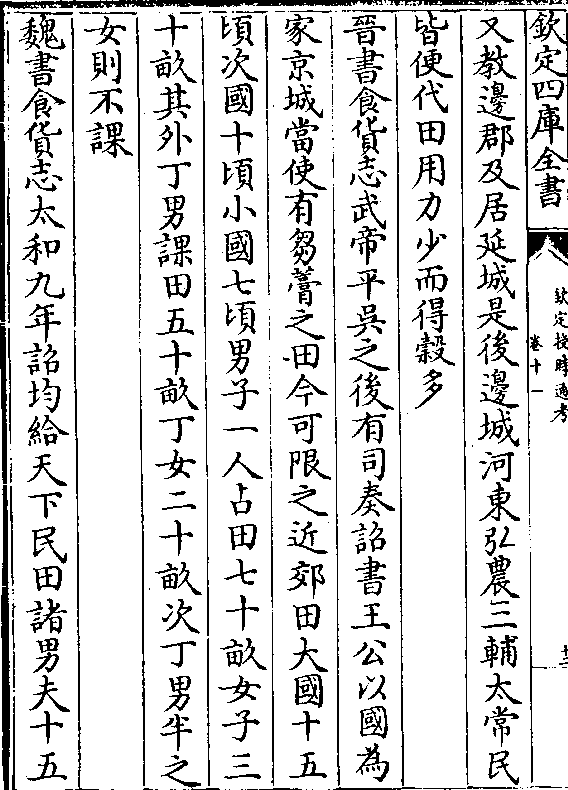 欽定四庫全書
欽定授時通考
卷十一
又教邊郡及居延城是後邊城河東弘農三輔太常民
皆便代田用力少而得穀多
晉書食貨志武帝平吳之後有司奏詔書王公以國為
家京城當使有芻蒿之田今可限之近郊田大國十五
頃次國十頃小國七頃男子一人占田七十畝女子三
十畝其外丁男課田五十畝丁女二十畝次丁男半之
女則不課
魏書食貨志太和九年詔均給天下民田諸男夫十五